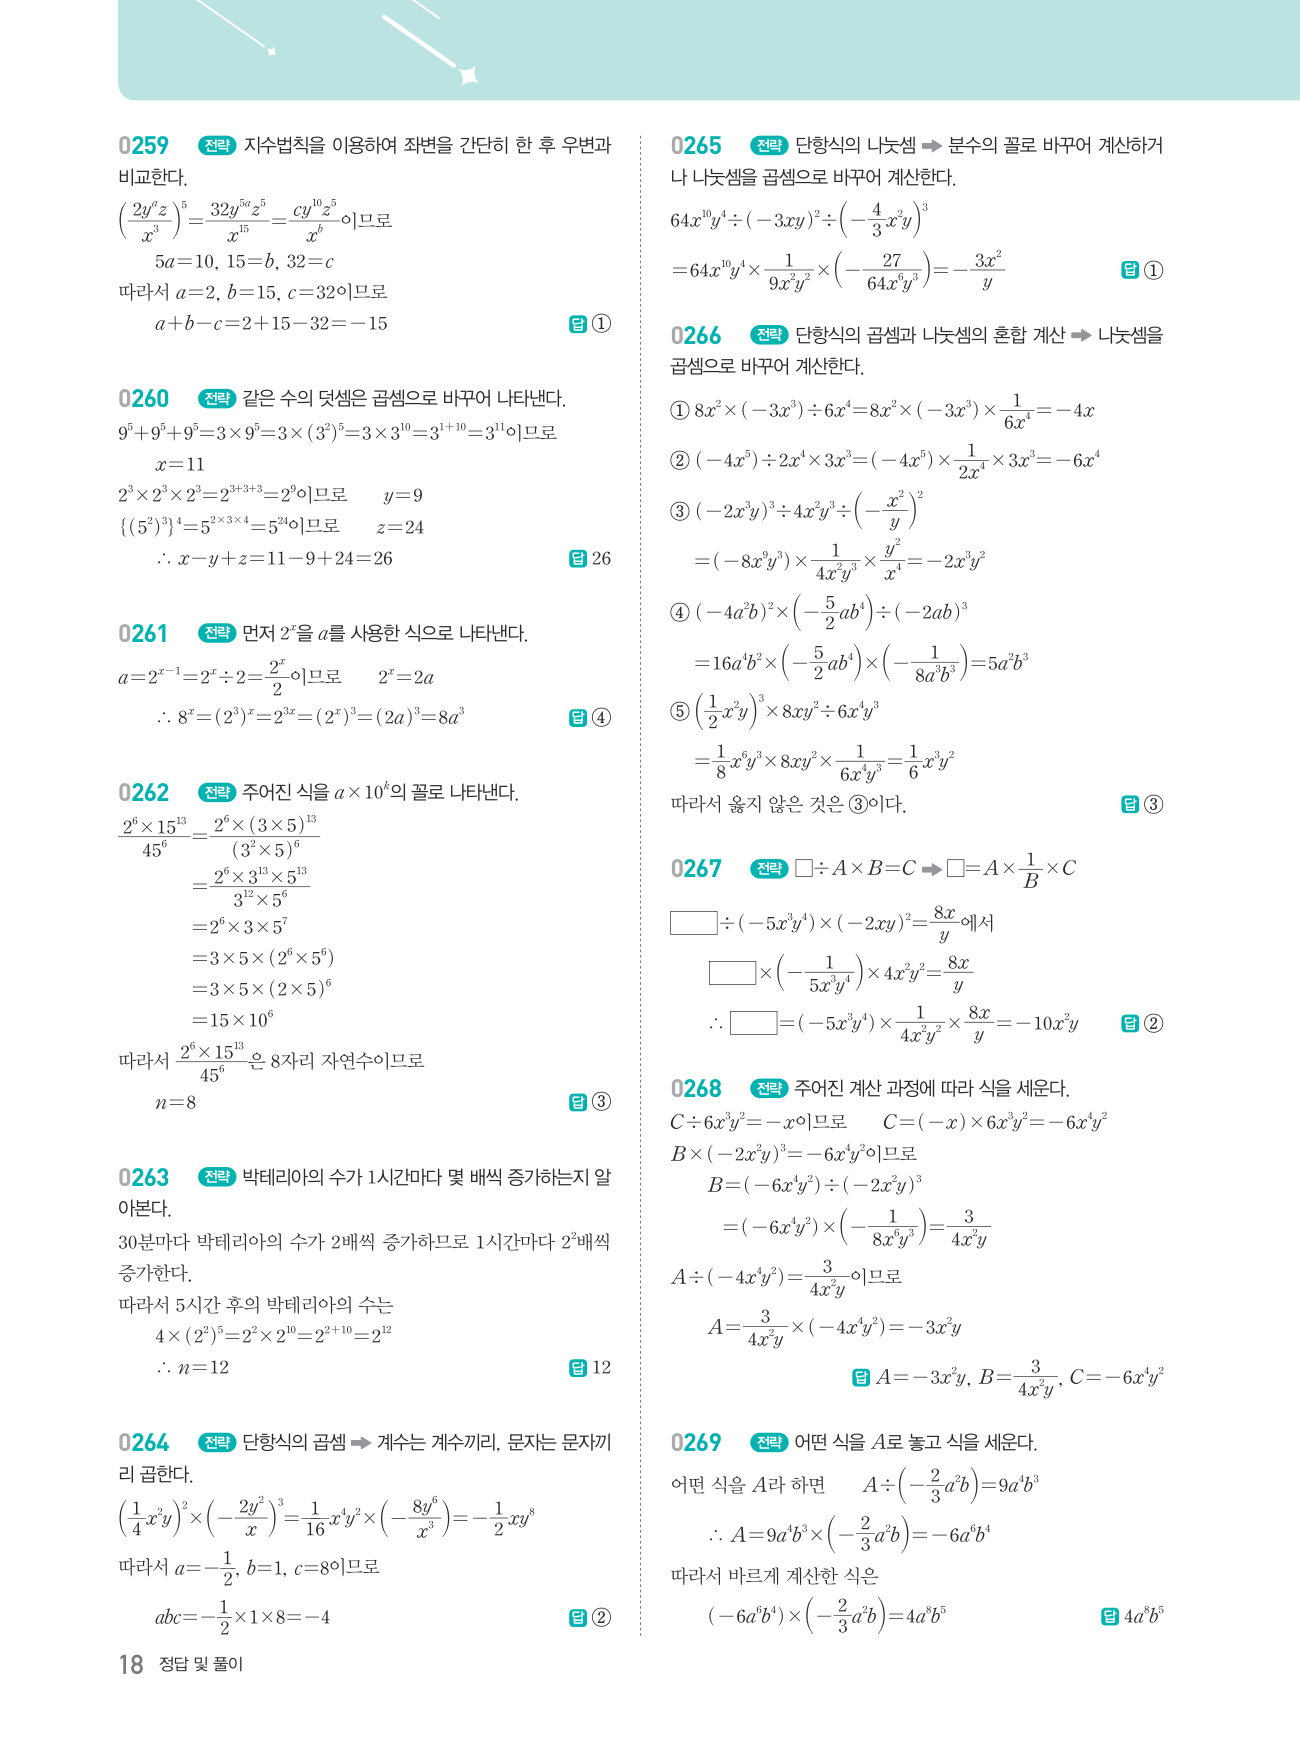 0259 전략 지수법칙을 이용하여 좌변을 간단히 한 후 우변과
비교한다.
(2yᵃz/x³)⁵=32y⁵ᵃz⁵/x¹⁵=cy¹⁰z⁵/xᵇ이므로
5a=10, 15=b, 32=c
따라서 a=2, b=15, c=32이므로
a+b-c=2+15-32=-15 답 ①
0260 전략 같은 수의 덧셈은 곱셈으로 바꾸어 나타낸다.
9⁵+9⁵+9⁵=3×9⁵=3×(3²)⁵=3×3¹⁰=3¹⁺¹⁰=3¹¹이므로
x=11
2³×2³×2³=2³⁺³⁺³=2⁹이므로 y=9
{(5²)³}⁴=5^(2×3×4)=5²⁴이므로 z=24
∴ x-y+z=11-9+24=26 답 26
0261 전략 먼저 2ˣ을 a를 사용한 식으로 나타낸다.
a=2ˣ⁻¹=2ˣ÷2=2ˣ/2이므로 2ˣ=2a
∴ 8ˣ=(2³)ˣ=2³ˣ=(2ˣ)³=(2a)³=8a³ 답 ④
0262 전략 주어진 식을 a×10ᵏ의 꼴로 나타낸다.
2⁶×15¹³/45⁶=2⁶×(3×5)¹³/(3²×5)⁶
=2⁶×3¹³×5¹³/3¹²×5⁶
=2⁶×3×5⁷
=3×5×(2⁶×5⁶)
=3×5×(2×5)⁶
=15×10⁶
따라서 2⁶×15¹³/45⁶은 8자리 자연수이므로
n=8 답 ③
0263 전략 박테리아의 수가 1시간마다 몇 배씩 증가하는지 알
아본다.
30분마다 박테리아의 수가 2배씩 증가하므로 1시간마다 2²배씩
증가한다.
따라서 5시간 후의 박테리아의 수는
4×(2²)⁵=2²×2¹⁰=2²⁺¹⁰=2¹²
∴ n=12 답 12
0264 전략 단항식의 곱셈 ➡ 계수는 계수끼리, 문자는 문자끼
리 곱한다.
(1/4 x²y)²×(-2y²/x)³=1/16 x⁴y²×(-8y⁶/x³)=-1/2 xy⁸
따라서 a=-1/2, b=1, c=8이므로
abc=-1/2×1×8=-4 답 ②
18 정답 및 풀이
0265 전략 단항식의 나눗셈 ➡ 분수의 꼴로 바꾸어 계산하거
나 나눗셈을 곱셈으로 바꾸어 계산한다.
64x¹⁰y⁴÷(-3xy)²÷(-4/3 x²y)³
=64x¹⁰y⁴×1/9x²y²×(-27/64x⁶y³)=-3x²/y 답 ①
0266 전략 단항식의 곱셈과 나눗셈의 혼합 계산 ➡ 나눗셈을
곱셈으로 바꾸어 계산한다.
① 8x²×(-3x³)÷6x⁴=8x²×(-3x³)×1/6x⁴=-4x
② (-4x⁵)÷2x⁴×3x³=(-4x⁵)×1/2x⁴×3x³=-6x⁴
③ (-2x³y)³÷4x²y³÷(-x²/y)²
=(-8x⁹y³)×1/4x²y³×y²/x⁴=-2x³y²
④ (-4a²b)²×(-5/2 ab⁴)÷(-2ab)³
=16a⁴b²×(-5/2 ab⁴)×(-1/8a³b³)=5a²b³
⑤ (1/2 x²y)³×8xy²÷6x⁴y³
=1/8 x⁶y³×8xy²×1/6x⁴y³=1/6 x³y²
따라서 옳지 않은 것은 ③이다. 답 ③
0267 전략 □÷A×B=C ➡ □=A×1/B×C
□÷(-5x³y⁴)×(-2xy)²=8x/y에서
□×(-1/5x³y⁴)×4x²y²=8x/y
∴ □=(-5x³y⁴)×1/4x²y²×8x/y=-10x²y 답 ②
0268 전략 주어진 계산 과정에 따라 식을 세운다.
C÷6x³y²=-x이므로 C=(-x)×6x³y²=-6x⁴y²
B×(-2x²y)³=-6x⁴y²이므로
B=(-6x⁴y²)÷(-2x²y)³
=(-6x⁴y²)×(-1/8x⁶y³)=3/4x²y
A÷(-4x⁴y²)=3/4x²y이므로
A=3/4x²y×(-4x⁴y²)=-3x²y
답 A=-3x²y, B=3/4x²y, C=-6x⁴y²
0269 전략 어떤 식을 A로 놓고 식을 세운다.
어떤 식을 A라 하면 A÷(-2/3 a²b)=9a⁴b³
∴ A=9a⁴b³×(-2/3 a²b)=-6a⁶b⁴
따라서 바르게 계산한 식은
(-6a⁶b⁴)×(-2/3 a²b)=4a⁸b⁵ 답 4a⁸b⁵